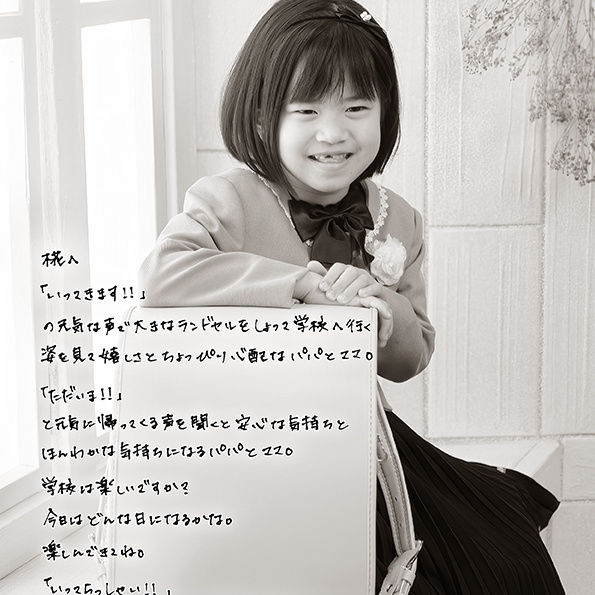 椛へ
「いってきます!!」
の元気な声で大きなランドセルをしょって学校へ行く
姿を見て嬉しさとちょっぴり心配なパパとママ。
「ただいま!!」
と元気に帰ってくる声を聞くと安心な気持ちと
ほんわかな気持ちになるパパとママ。
学校は楽しいですか?
今日はどんな日になるかな。
楽しんできてね。
「いってらっしゃい!!」